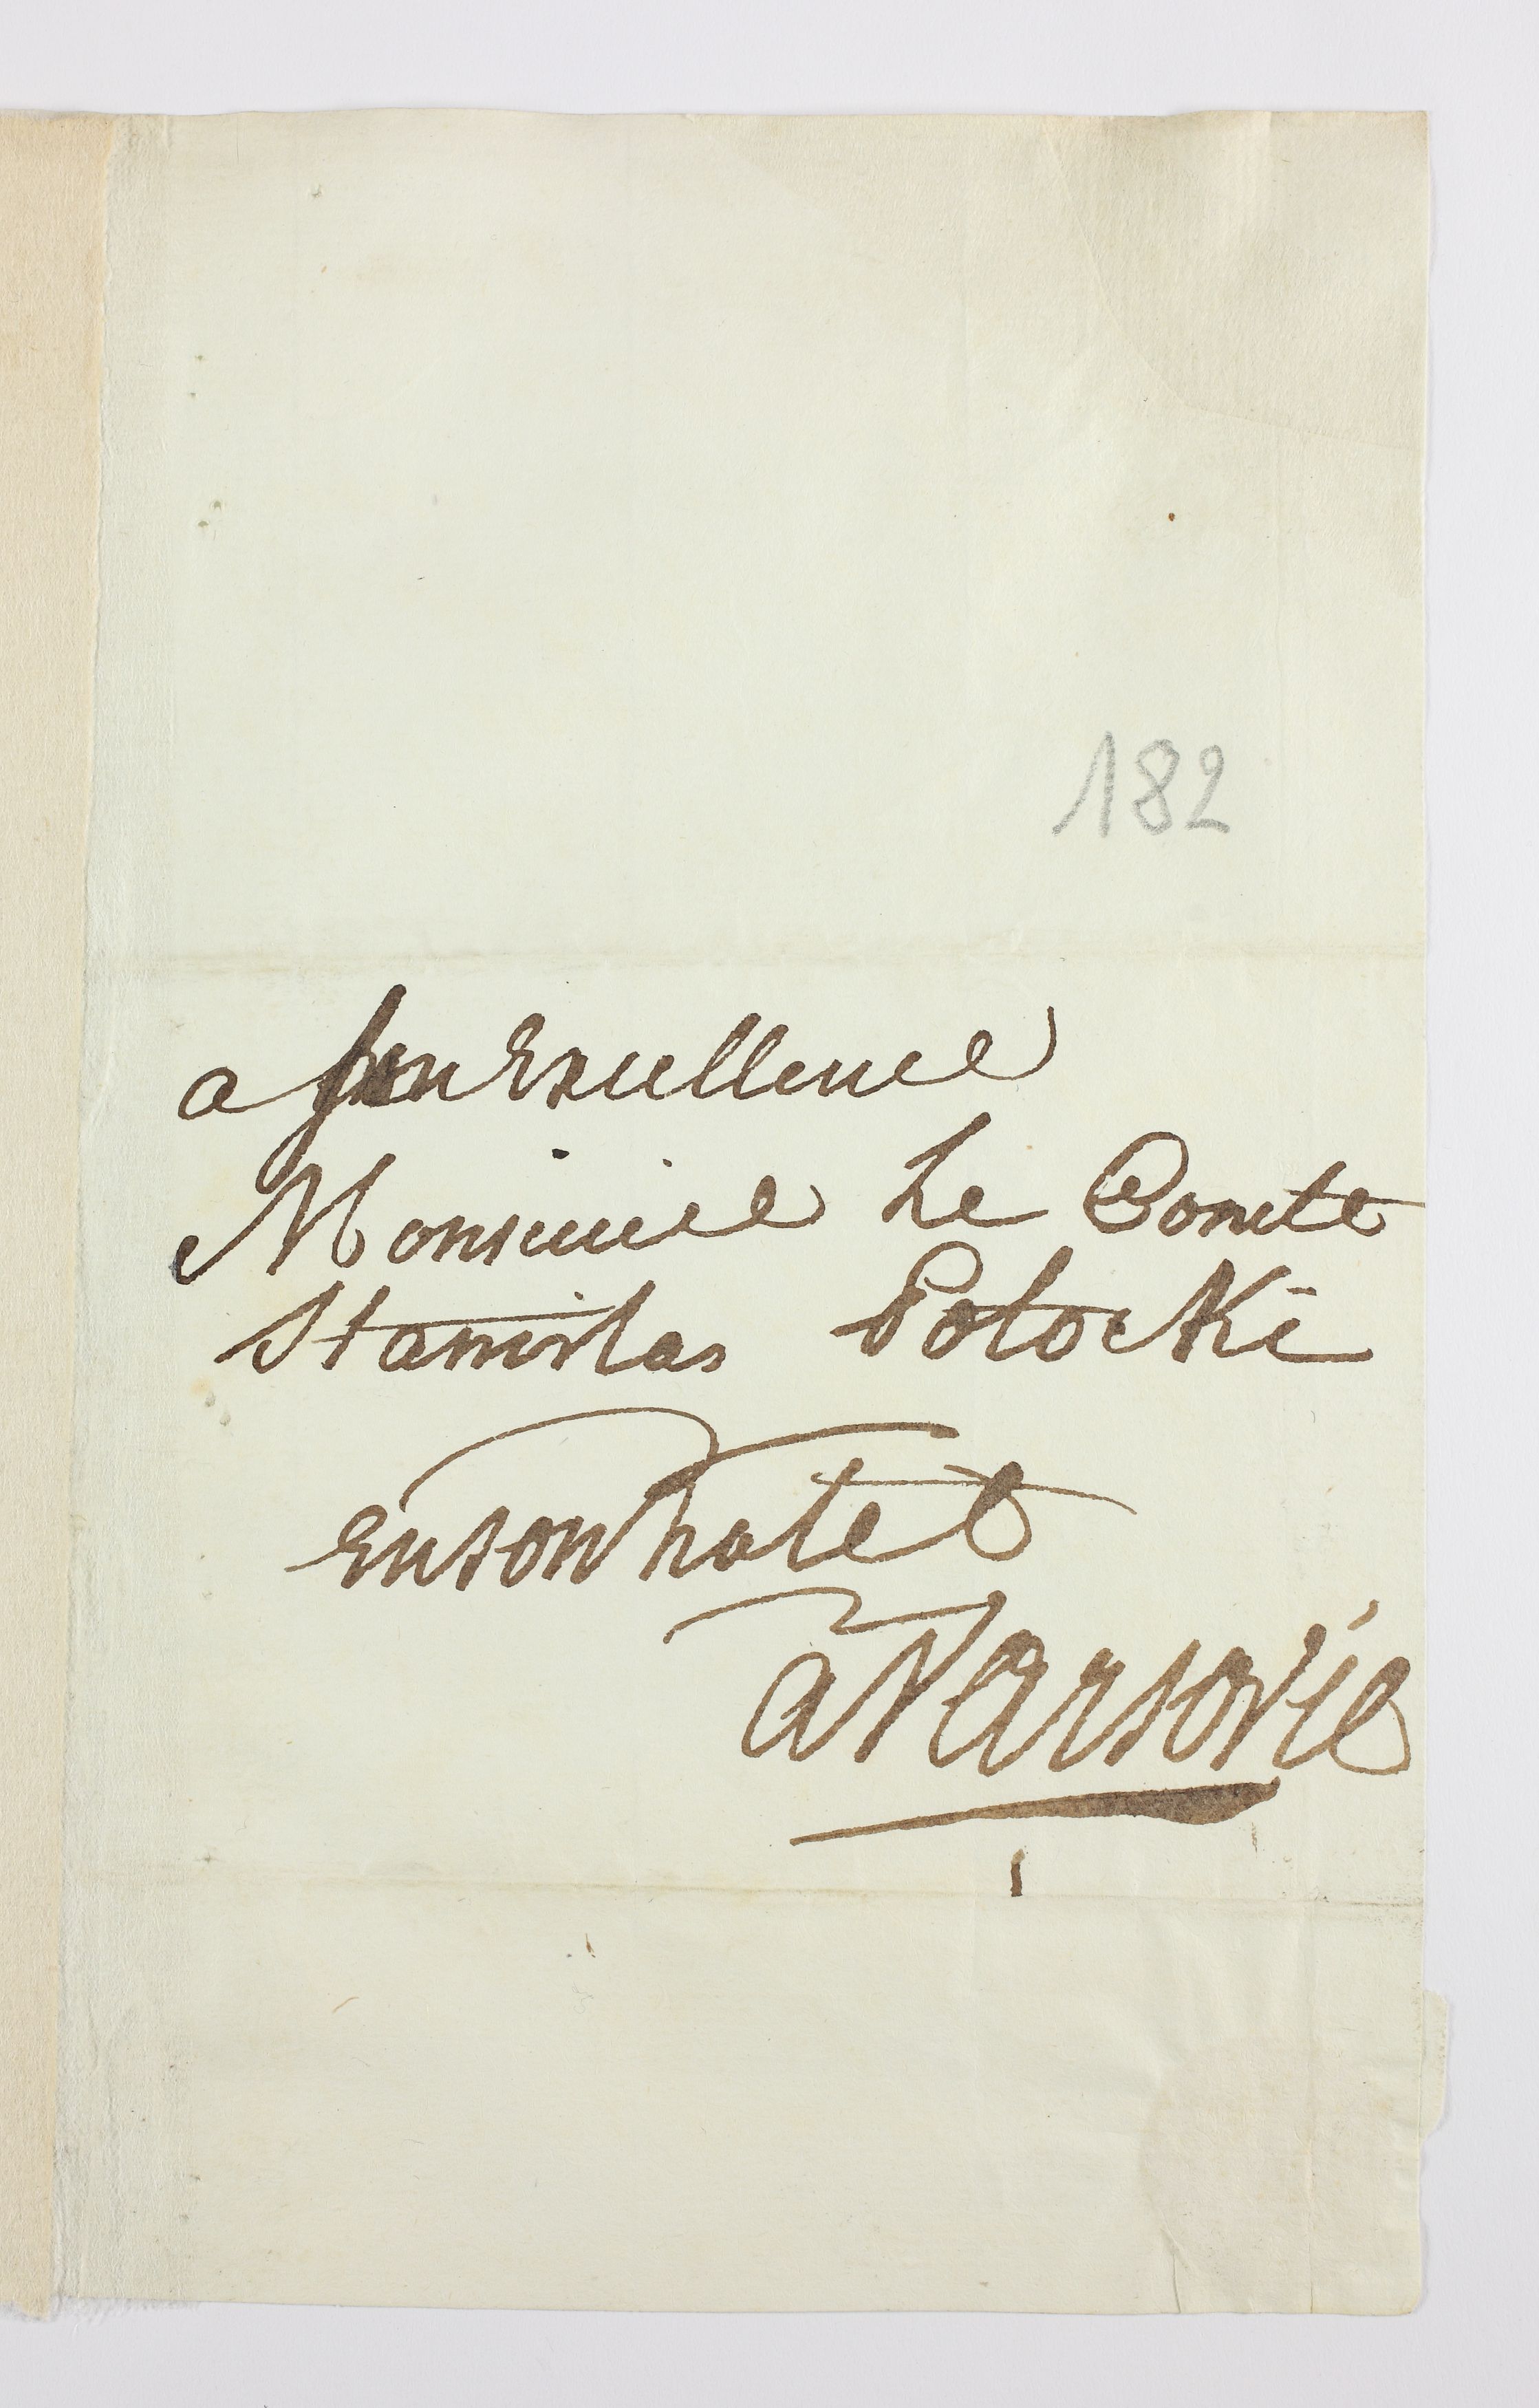 182
a son Excellence
Monsieur Le Comte
Stanislas Potocki
en son hotel
à Varsovie